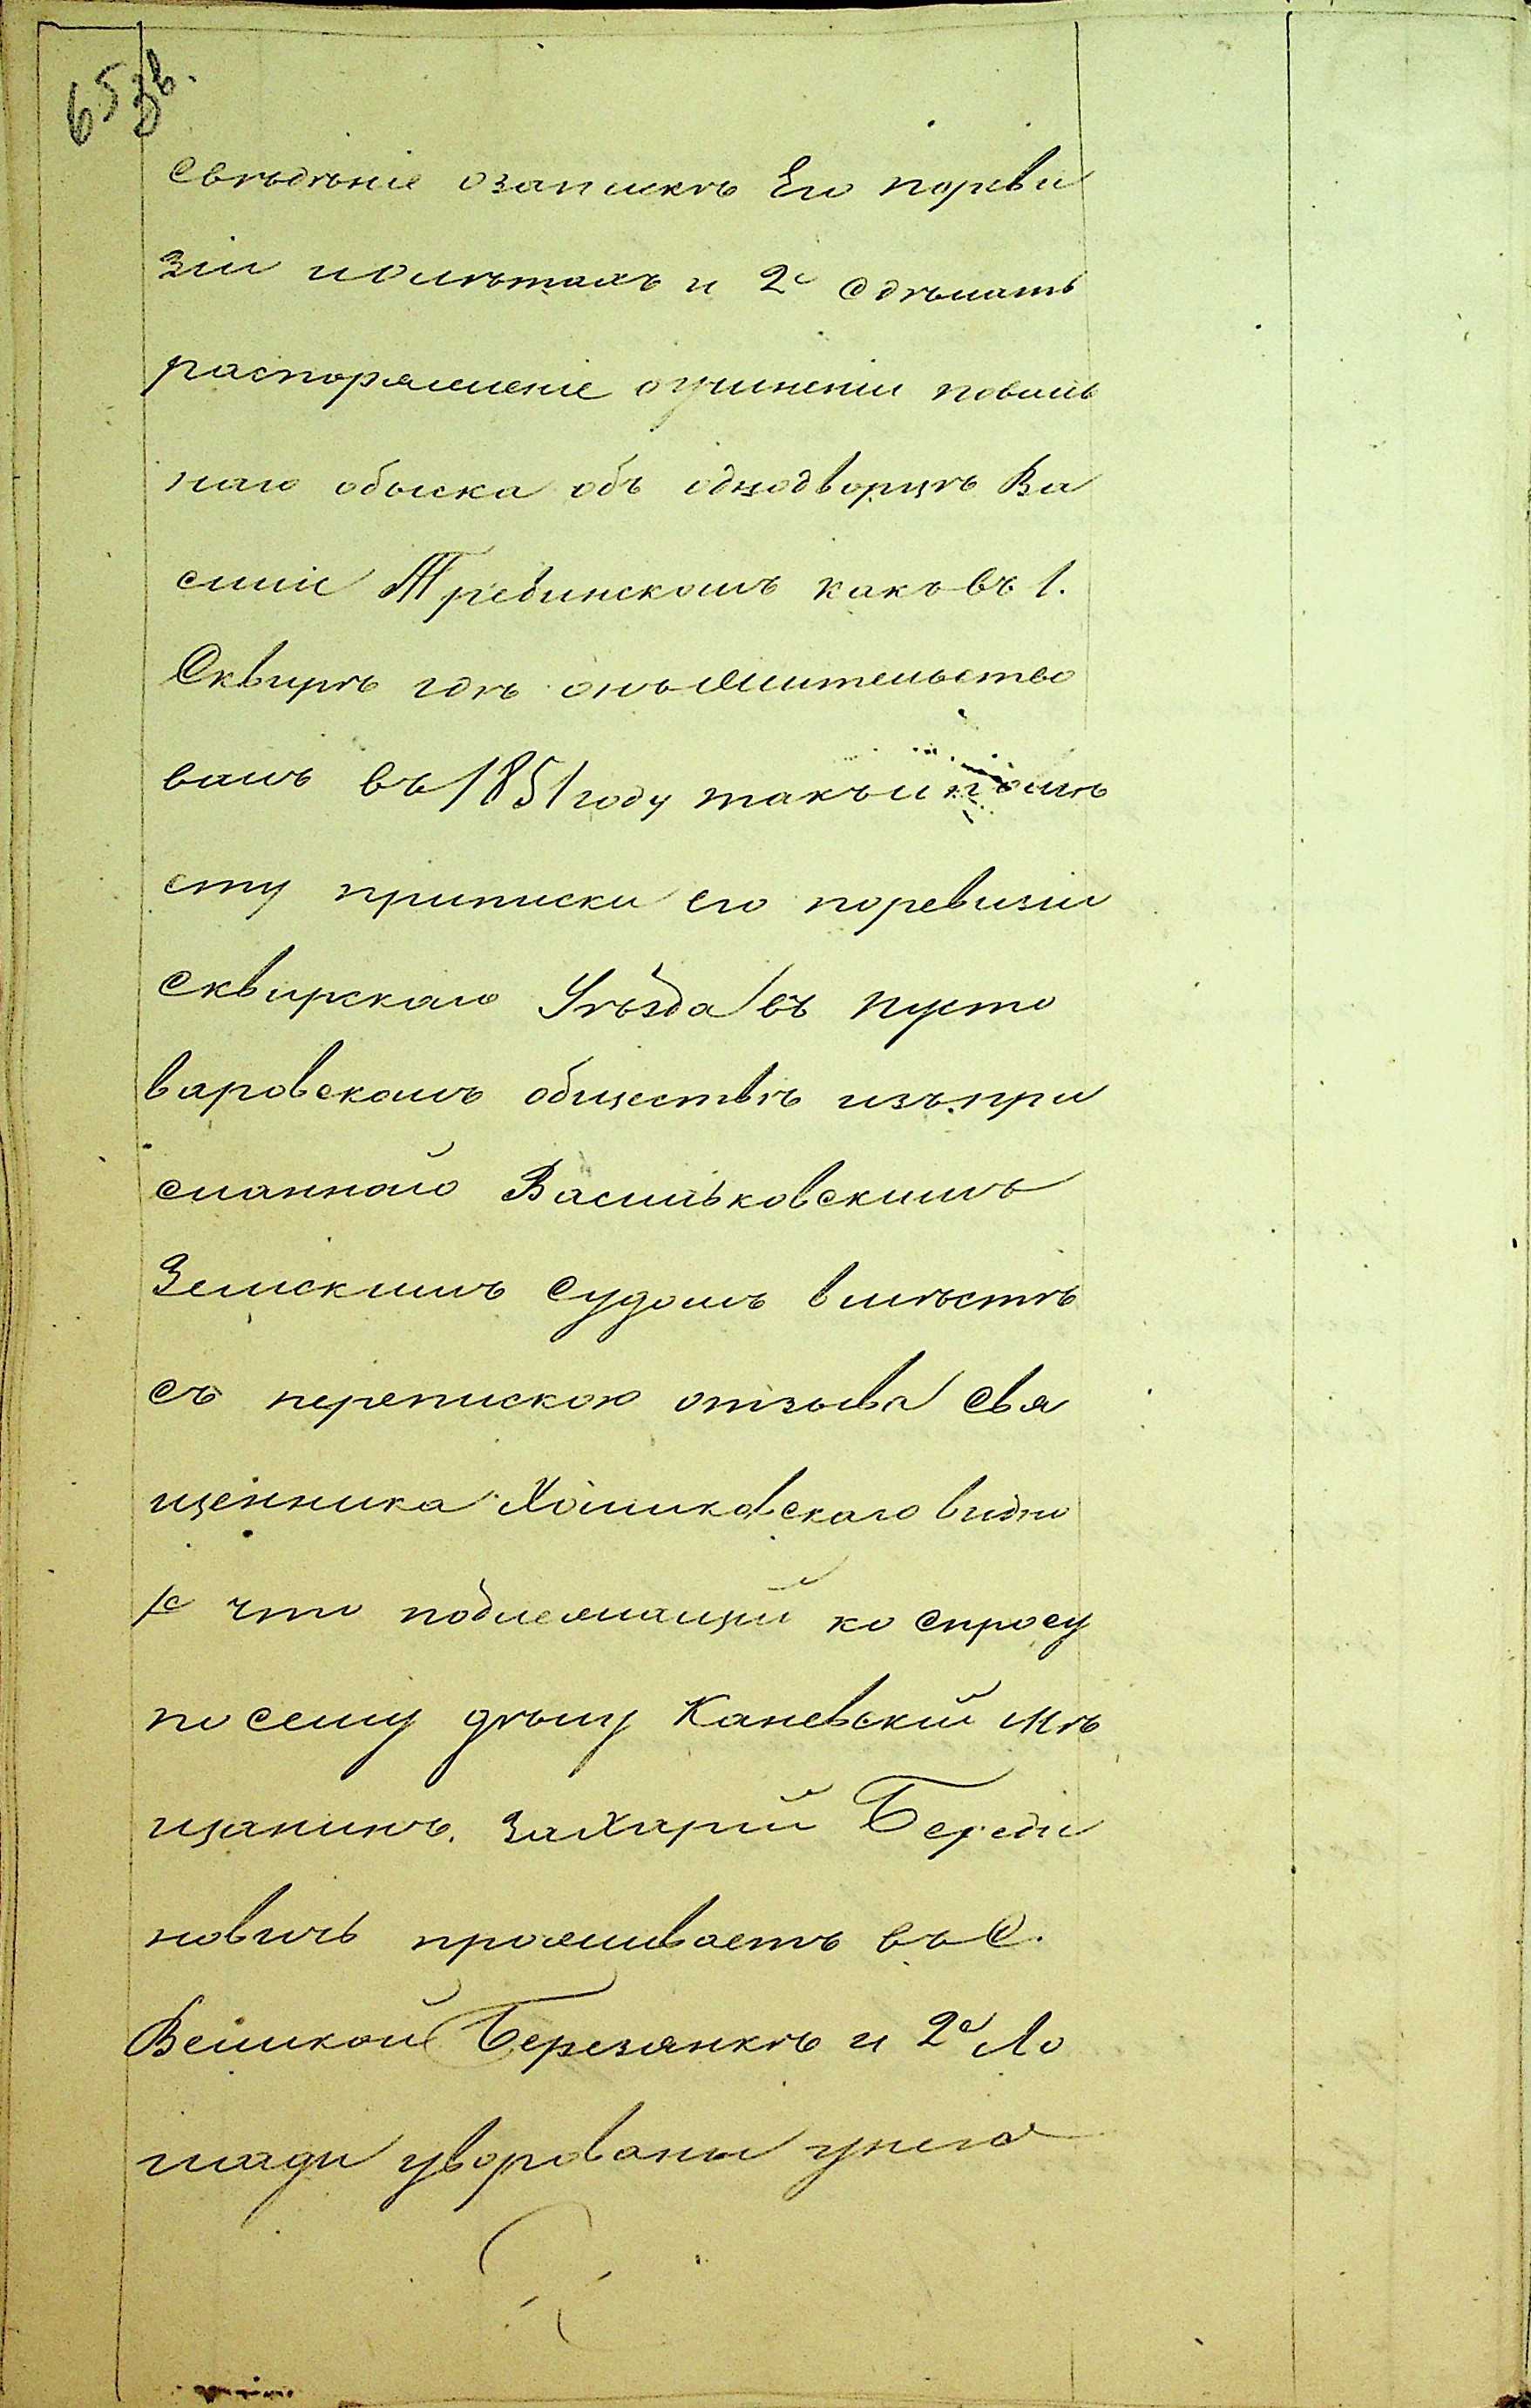 653в.
свѣдѣніе озапискѣ Его пореви
зіи илѣтахъ и 2е Сдѣлать
распоряженіе оучиненіи поваль
наго обыска объ однодворцѣ Ва
силіи Требинскомъ какъ въ г.
Сквирѣ гдѣ онъ жительство
валъ въ 1851 году такъ и помѣ
сту приписки его поревизіи
Сквирскаго Уѣзда въ пусто
варовскомъ обществѣ изъ при
сланного Васильковскимъ
Земскимъ Судомъ вмѣстѣ
съ перепискою отзыва Свя
щенника Хойиковскаго видно
1е что подлежащій ко спросу
по сему дѣлу Каневскій мѣ
щанинъ. Захарій Береди
новичь проживаетъ въ С.
Великой Березянкѣ и 2е Ло
шади уворованы унего